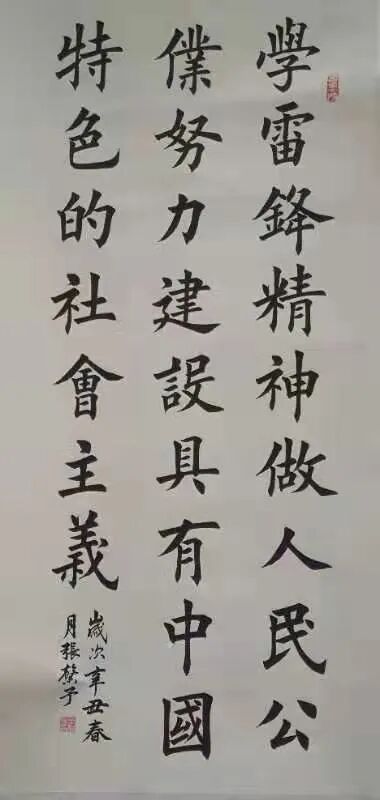 學雷鋒精神做人民公
僕努力建設具有中國
特色的社會主義
歲次辛丑春
月張馨予